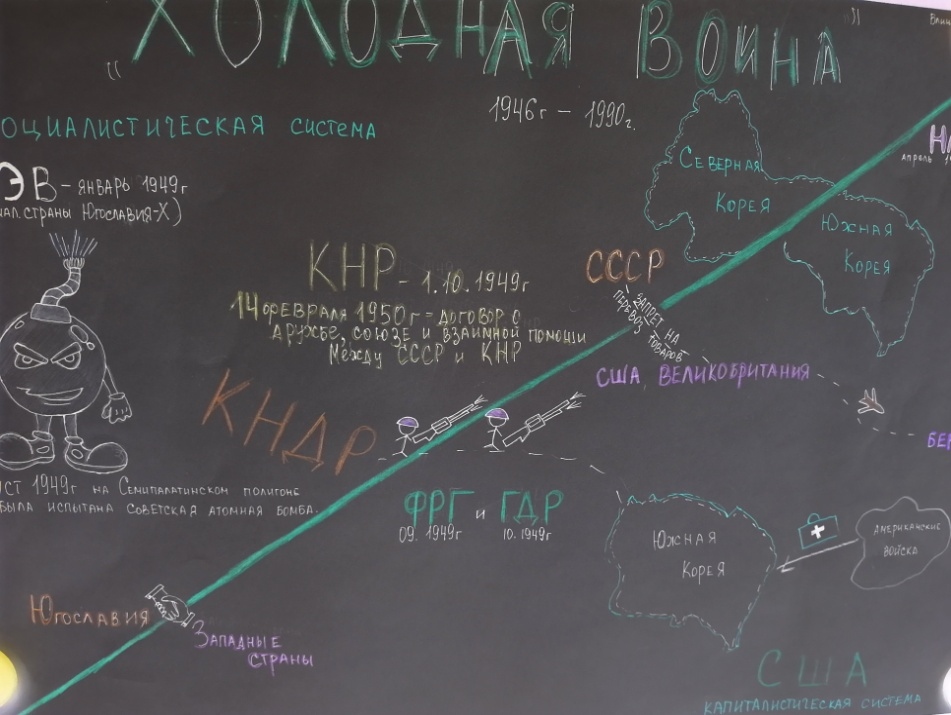 "ХОЛОДНАЯ ВОЙНА"
1946г – 1990г.
ОЦИАЛИСТИЧЕСКАЯ СИСТЕМА
ЭВ – ЯНВАРЬ 1949г
СТРАНЫ ЮГОСЛАВИЯ-Х)
СЕВЕРНАЯ
КОРЕЯ
ЮЖНАЯ
КОРЕЯ
КНР – 1.10.1949г
14 ФЕВРАЛЯ 1950г – ДОГОВОР О
ДРУЖБЕ, СОЮЗЕ И ВЗАИМНОЙ ПОМОЩИ
МЕЖДУ СССР И КНР
СССР
ЗАПРЕТ НА
ПЕРЕВОЗ ТОВАРОВ
США, ВЕЛИКОБРИТАНИЯ
БЕР
КНДР
УСТ 1949г НА СЕМИПАЛАТИНСКОМ ПОЛИГОНЕ
БЫЛА ИСПЫТАНА СОВЕТСКАЯ АТОМНАЯ БОМБА.
ФРГ И ГДР
09. 1949г 10. 1949г
ЮЖНАЯ
КОРЕЯ
АМЕРИКАНСКИЕ
ВОЙСКА
ЮГОСЛАВИЯ
ЗАПАДНЫЕ
СТРАНЫ
США
КАПИТАЛИСТИЧЕСКАЯ СИСТЕМА